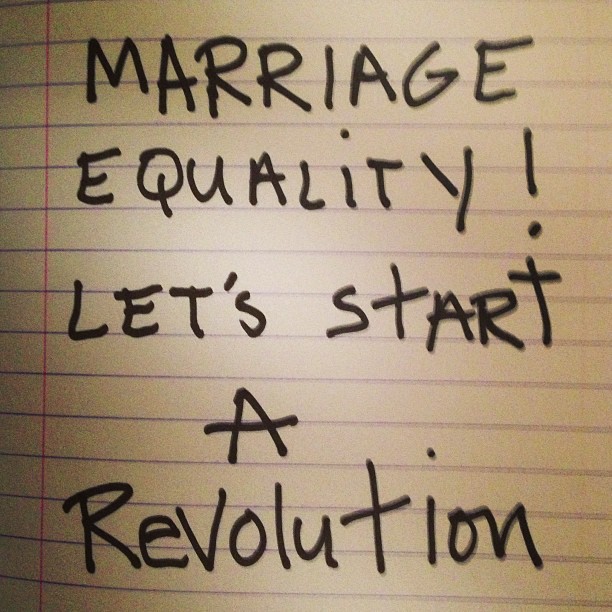 MARRIAGE
EQUALiTY!
LET'S StARt
A
Revolution